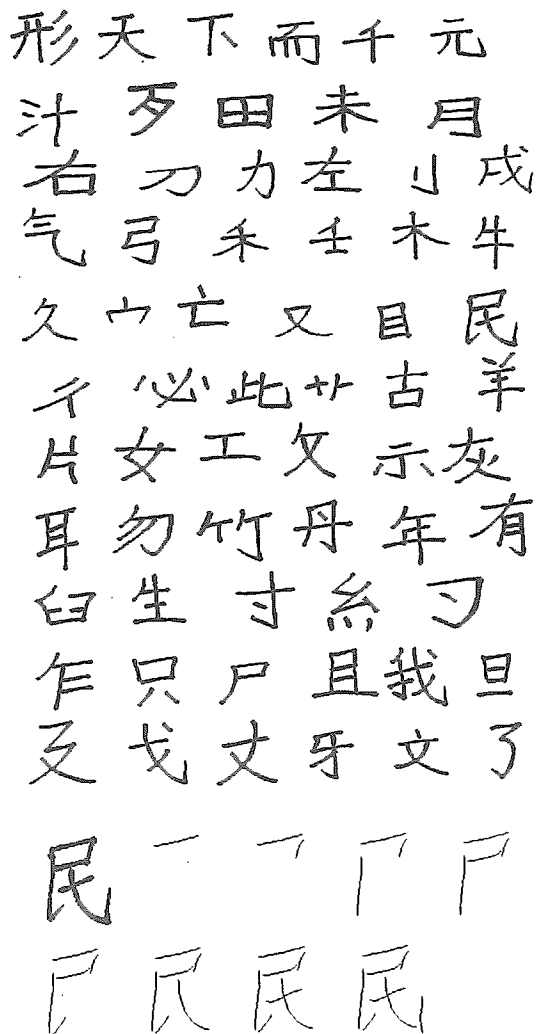 形 天 下 而 千 元
汁 歹 田 未 月
右 刀 力 左 刂 戍
气 弓 禾 壬 木 牛
久 宀 亡 又 目 民
彳 必 此 艹 古 羊
片 女 工 攵 示 灰
耳 勿 竹 丹 年 有
臼 生 寸 糸 刁
乍 只 尸 且 我 旦
廴 戈 丈 牙 文 了
民